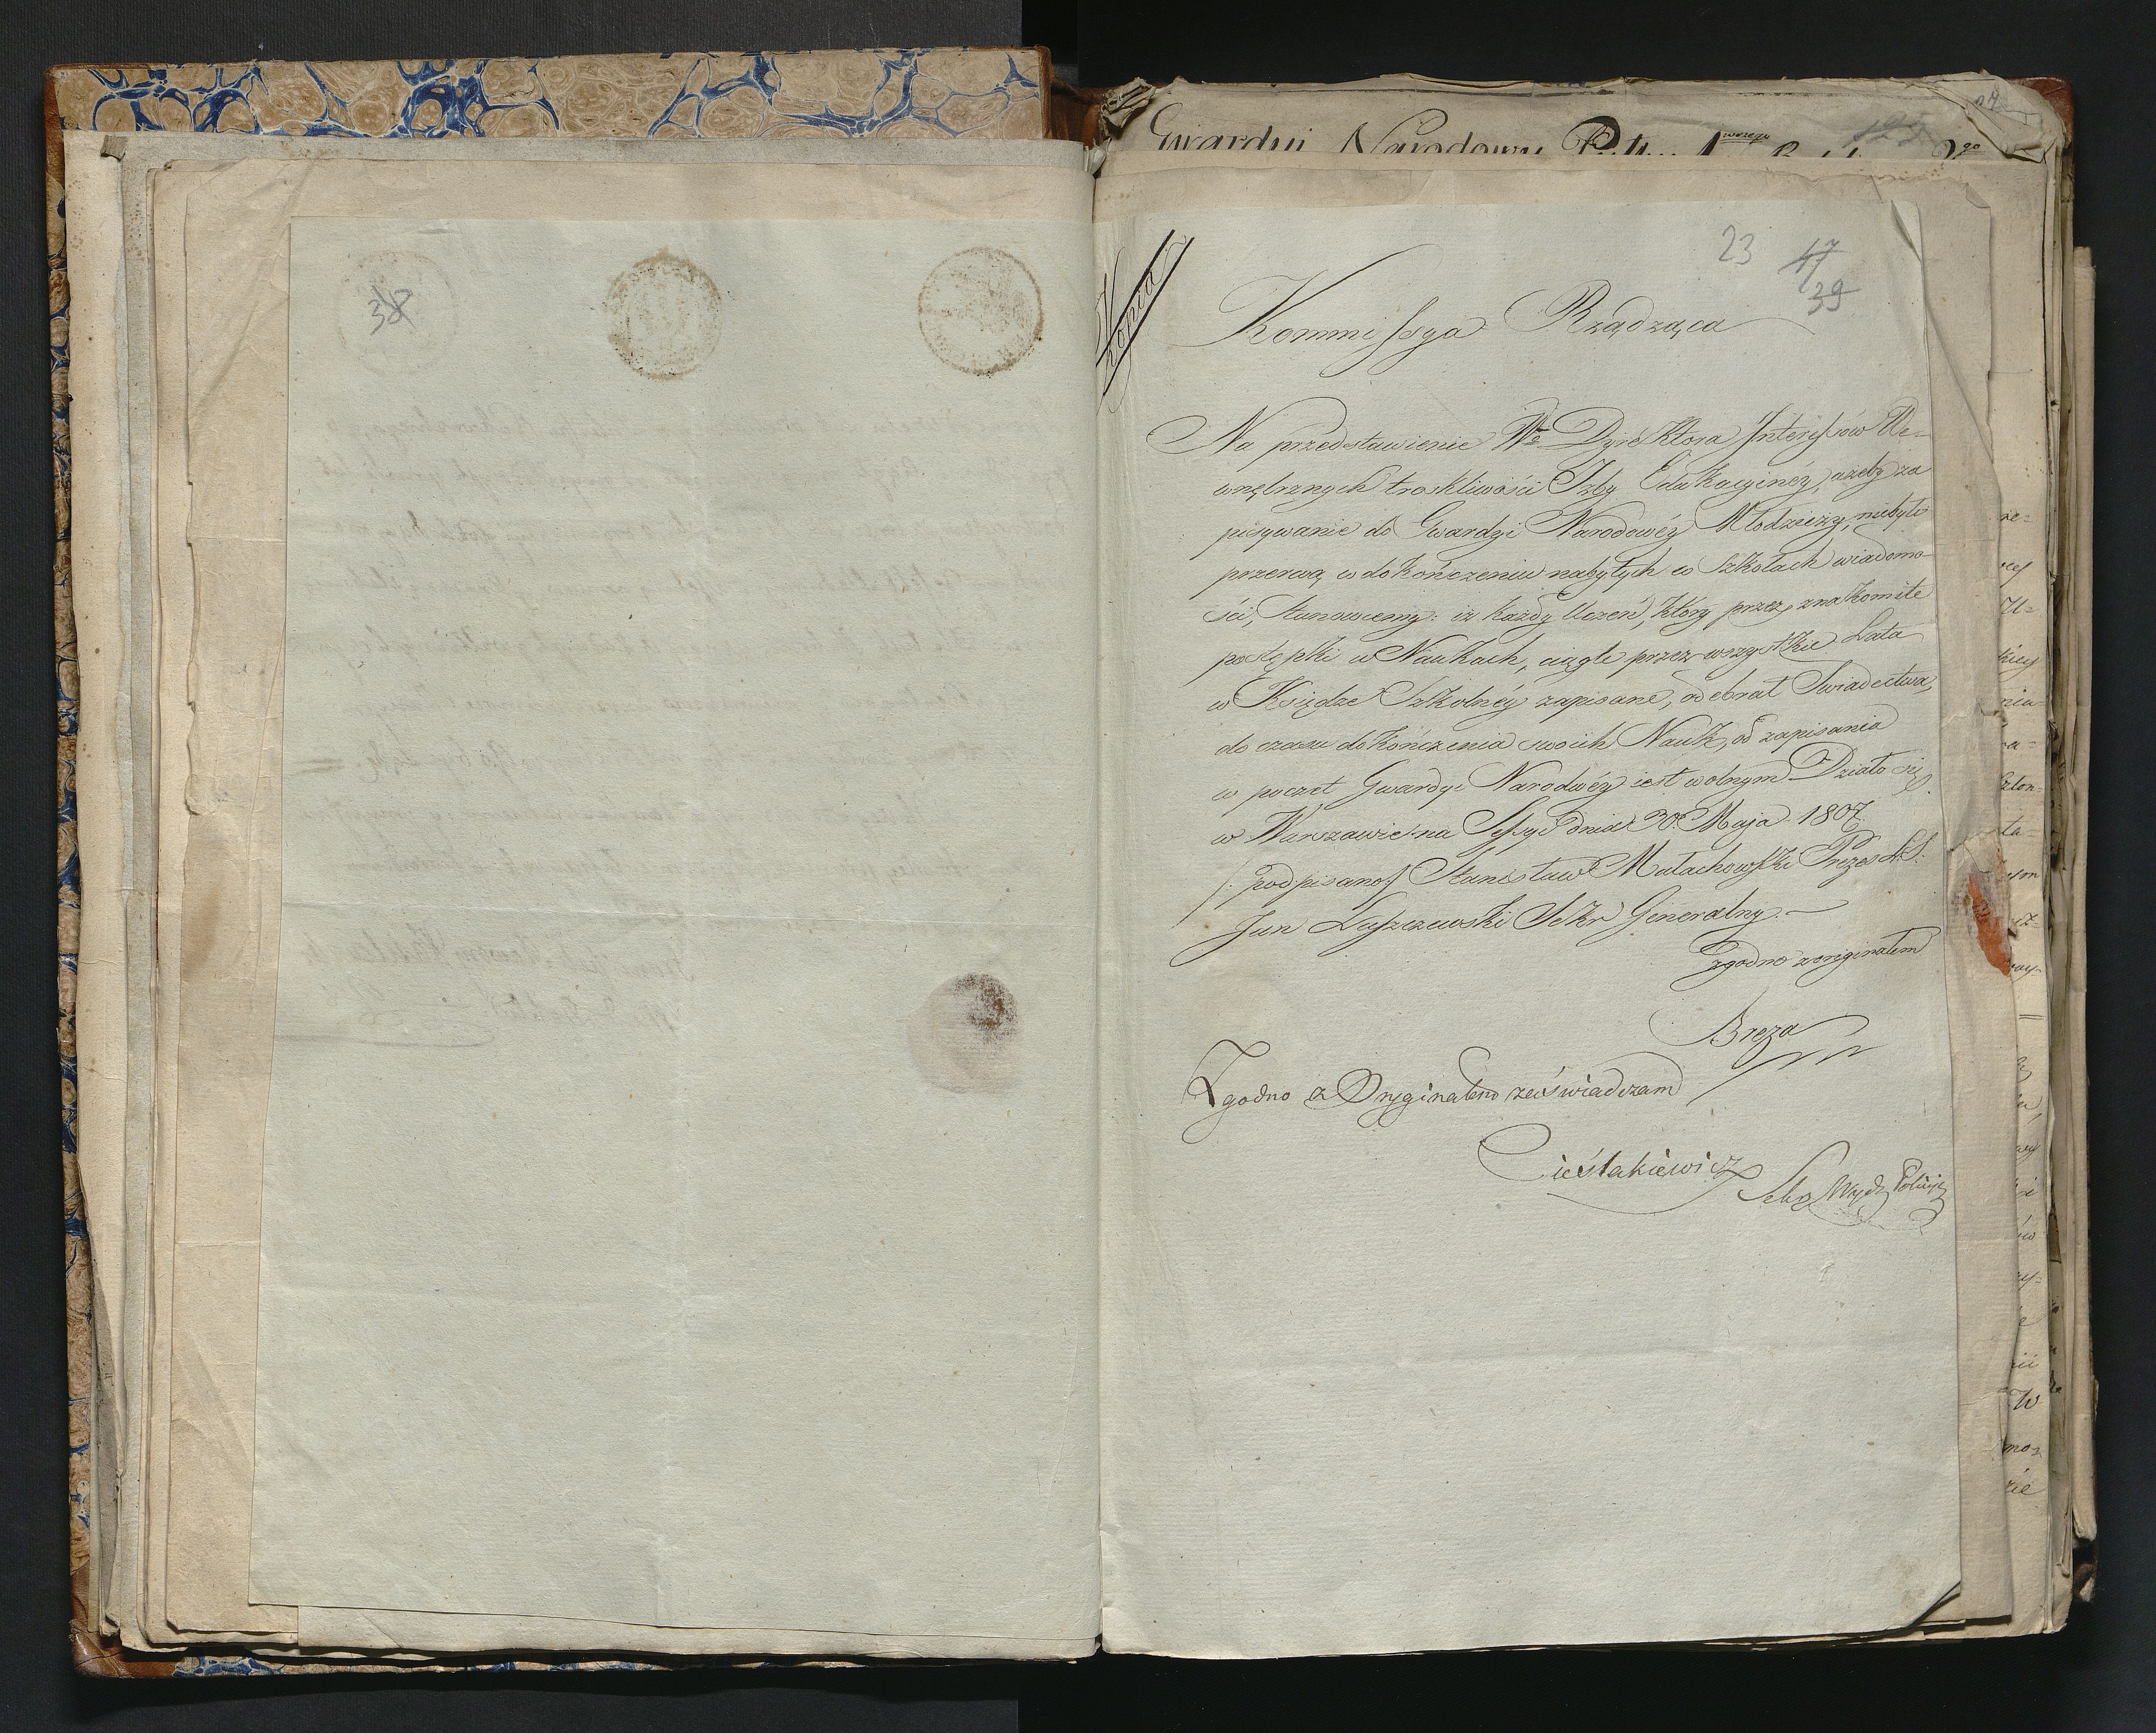 38
Gwardyi Narodowey
23 47
39
Kopia
Kommissya Rządząca
Na przedstawienie Wo Dyrektora Interessów We-
wnętrznych troskliwości Izby Edukacyinéy, ażeby za
pisywanie do Gwardyi Narodowéy Młodzieży, niebyło
przerwą w dokończeniu nabytych w Szkołach wiadomo-
ści, Stanowiemy: iż każdy Uczeń, który przez znakomite
postępki w Naukach, ciągle przez wszystkie Lata
w Księdze Szkolnéy zapisane, odebrał Swiadectwa,
do czasu dokończenia swoich Nauk, od zapisania
w poczet Gwardyi Narodwéy iest wolnym. Działo się
w Warszawie na Sessyi dnia 30. Maja 1807.
/: podpisano/ Stanisław Małachowski Prezes L.S.
Jan Łuszczewski Sekr Generalny.
Zgodno z originałem
Breza
Zgodno z Oryginałem zaświadczam
Cieślakiewicz Sekr Wydz Policyi